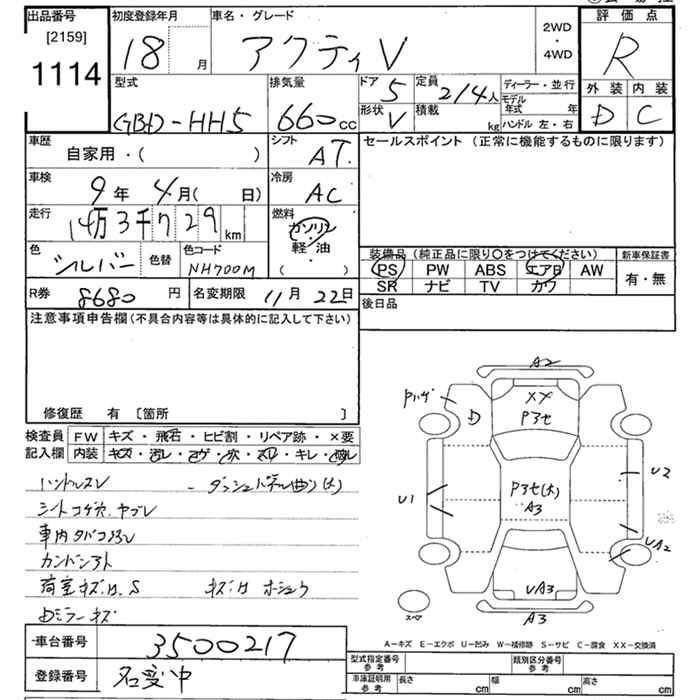 出品番号 初度登録年月 車名・グレード 2WD・4WD 評価点
[2159]
1114 18 月 アクティV R
型式 排気量 ドア 5 定員 2/4人 ディーラー・並行 外装 内装
GBD-HH5 660cc 形状 V 積載 kg モデル年式 年 ハンドル 左・右 D C
車歴 自家用・( ) シフト AT セールスポイント (正常に機能するものに限ります)
車検 9年4月( 日) 冷房 AC
走行 14万3千729km 燃料 ガソリン 軽・油 ( )
色 シルバー 色替 色コード NH700M
装備品 (純正品に限り○をつけてください) 新車保証書
PS PW ABS エアB AW 有・無
SR ナビ TV カワ
R券 8680円 名変期限 11月22日 後日品
注意事項申告欄(不具合内容等は具体的に記入して下さい)
修復歴 有 [箇所 ]
検査員 FW キズ・飛石・ヒビ割・リペア跡・×要
記入欄 内装 キズ・汚レ・コゲ・穴・スリ・キレ・破レ
ハンドルスレ - ダッシュパネル曲り(大)
シートコゲ穴.ヤブレ
車内タバコ
荷室キズ.H.S キズ.H ホシュウ
Dミラーキズ
A2
XX
P3セ
D
P3セ(大)
A3
U1
U2
UA2
UA3
A3
スペア
A-キズ E-エクボ U-凹み W-補修跡 S-サビ C-腐食 XX-交換済
車台番号 3500217
登録番号 名変中
型式指定番号 参考 類別区分番号 参考
車庫証明用 参考 長さ cm 幅 cm 高さ cm